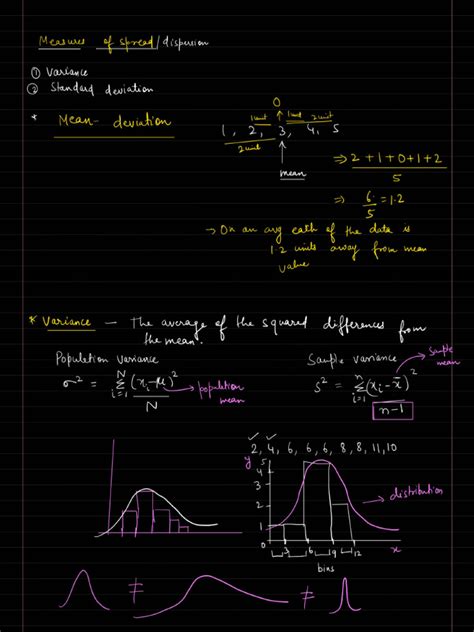 Measures of spread/dispersion
① Variance
② Standard deviation
* Mean-deviation
0
1unit 1unit 2unit
1, 2, 3, 4, 5
2unit
mean
⇒ 2+1+0+1+2 / 5
⇒ 6/5 = 1.2
→ On an avg each of the data is
1.2 units away from mean
value
* Variance — The average of the squared differences from
the mean.
Population variance
σ² = Σ_{i=1}^{N} (x_i - μ)² / N → population mean
Sample variance
s² = Σ_{i=1}^{n} (x_i - x̄)² / n-1 → sample mean
2, 4, 6, 6, 6, 8, 8, 11, 10
y
5
4
3
2
1
0
3 6 9 12
x
bins
→ distribution
≠ ≠